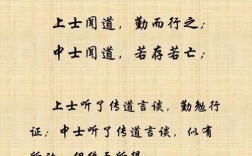 上士闻道，勤而行之；
中士闻道，若存若亡；
上士听了传道言谈，勤勉行
证；中士听了传道言谈，似有